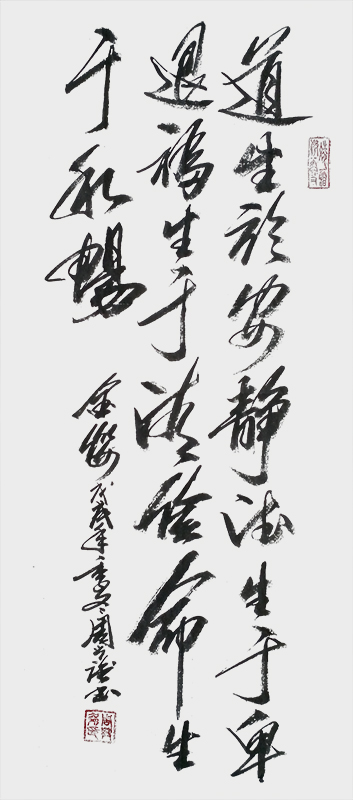 道生於安靜德生于卑
退福生于清儉命生
于和暢
金纓 戊戌年季冬 周書